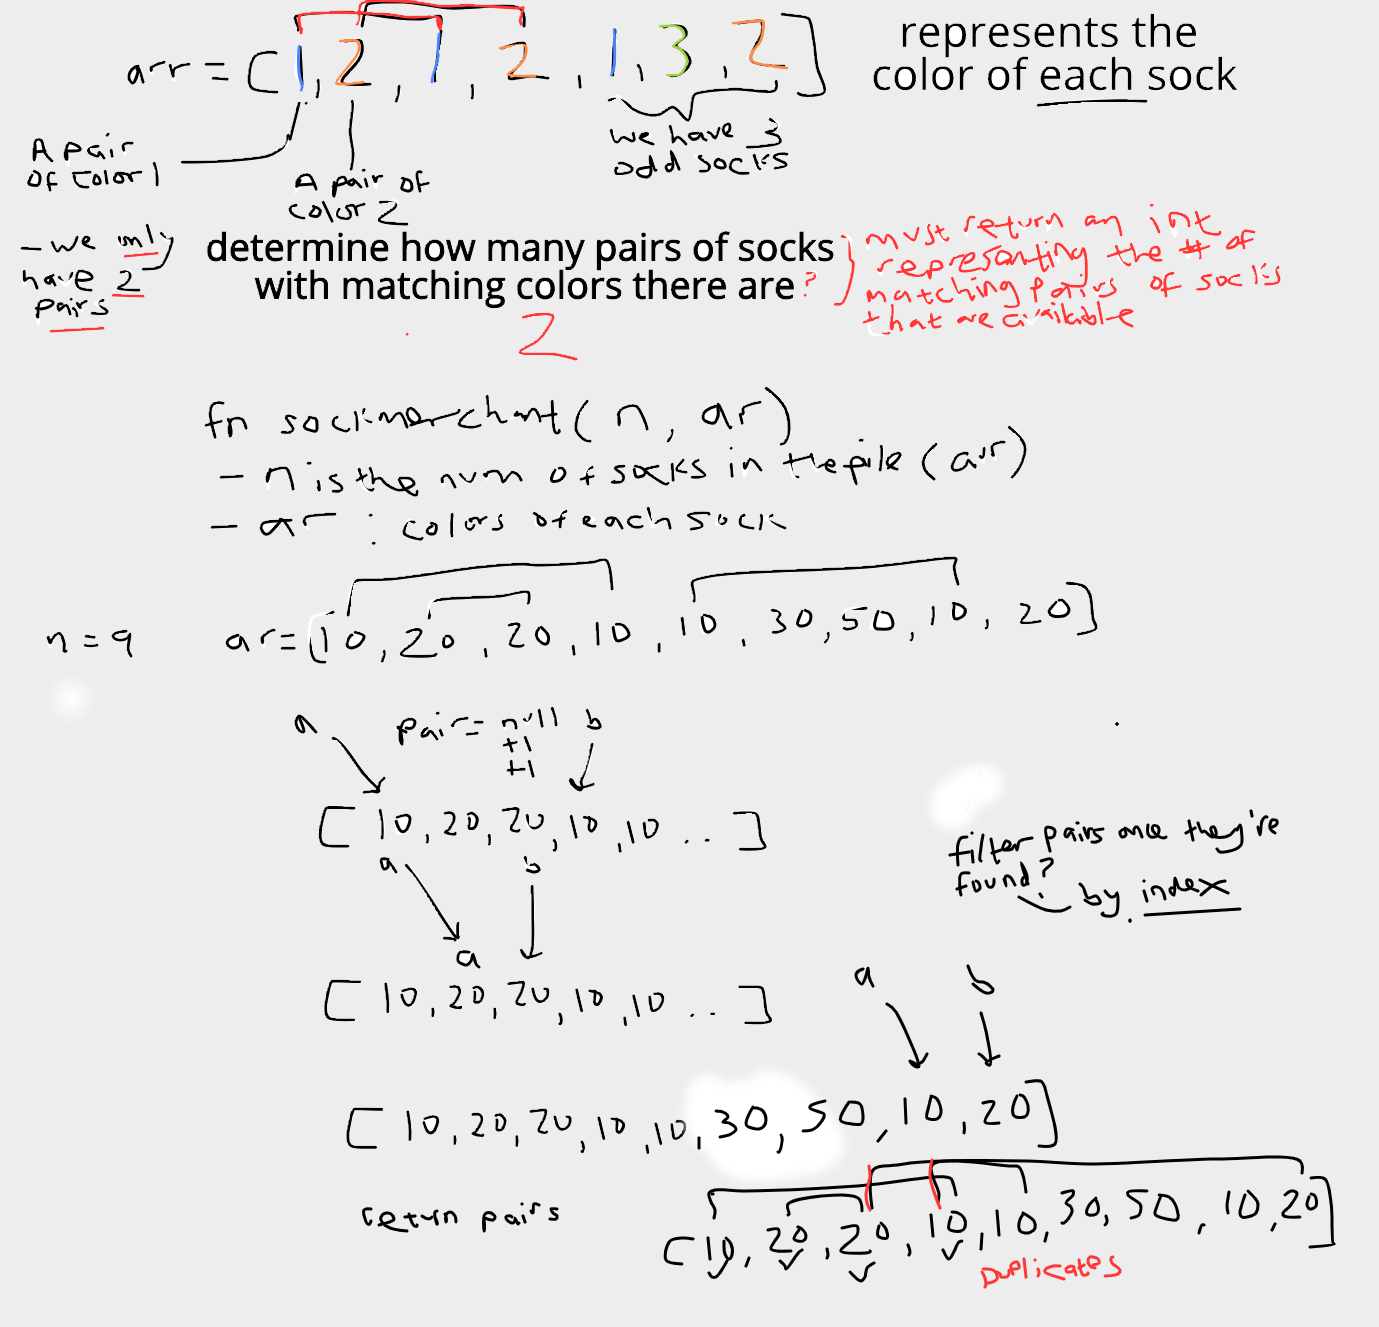 arr = [1, 2, 1, 2, 1, 3, 2]
represents the
color of each sock
A pair
of color 1
A pair of
color 2
we have 3
odd socks
- we only
have 2
pairs
determine how many pairs of socks
with matching colors there are?
2
must return an int
representing the # of
matching pairs of socks
that are available
fn sockmerchant(n, ar)
- n is the num of socks in the pile (arr)
- ar : colors of each sock
n = 9
ar=[10, 20, 20, 10, 10, 30, 50, 10, 20]
a
pair = null
b
+1
+1
[10, 20, 20, 10, 10 ..]
a
b
filter pairs once they're
found?
by index
a
[10, 20, 20, 10, 10 ..]
a
b
[10, 20, 20, 10, 10, 30, 50, 10, 20]
return pairs
[10, 20, 20, 10, 10, 30, 50, 10, 20]
Duplicates